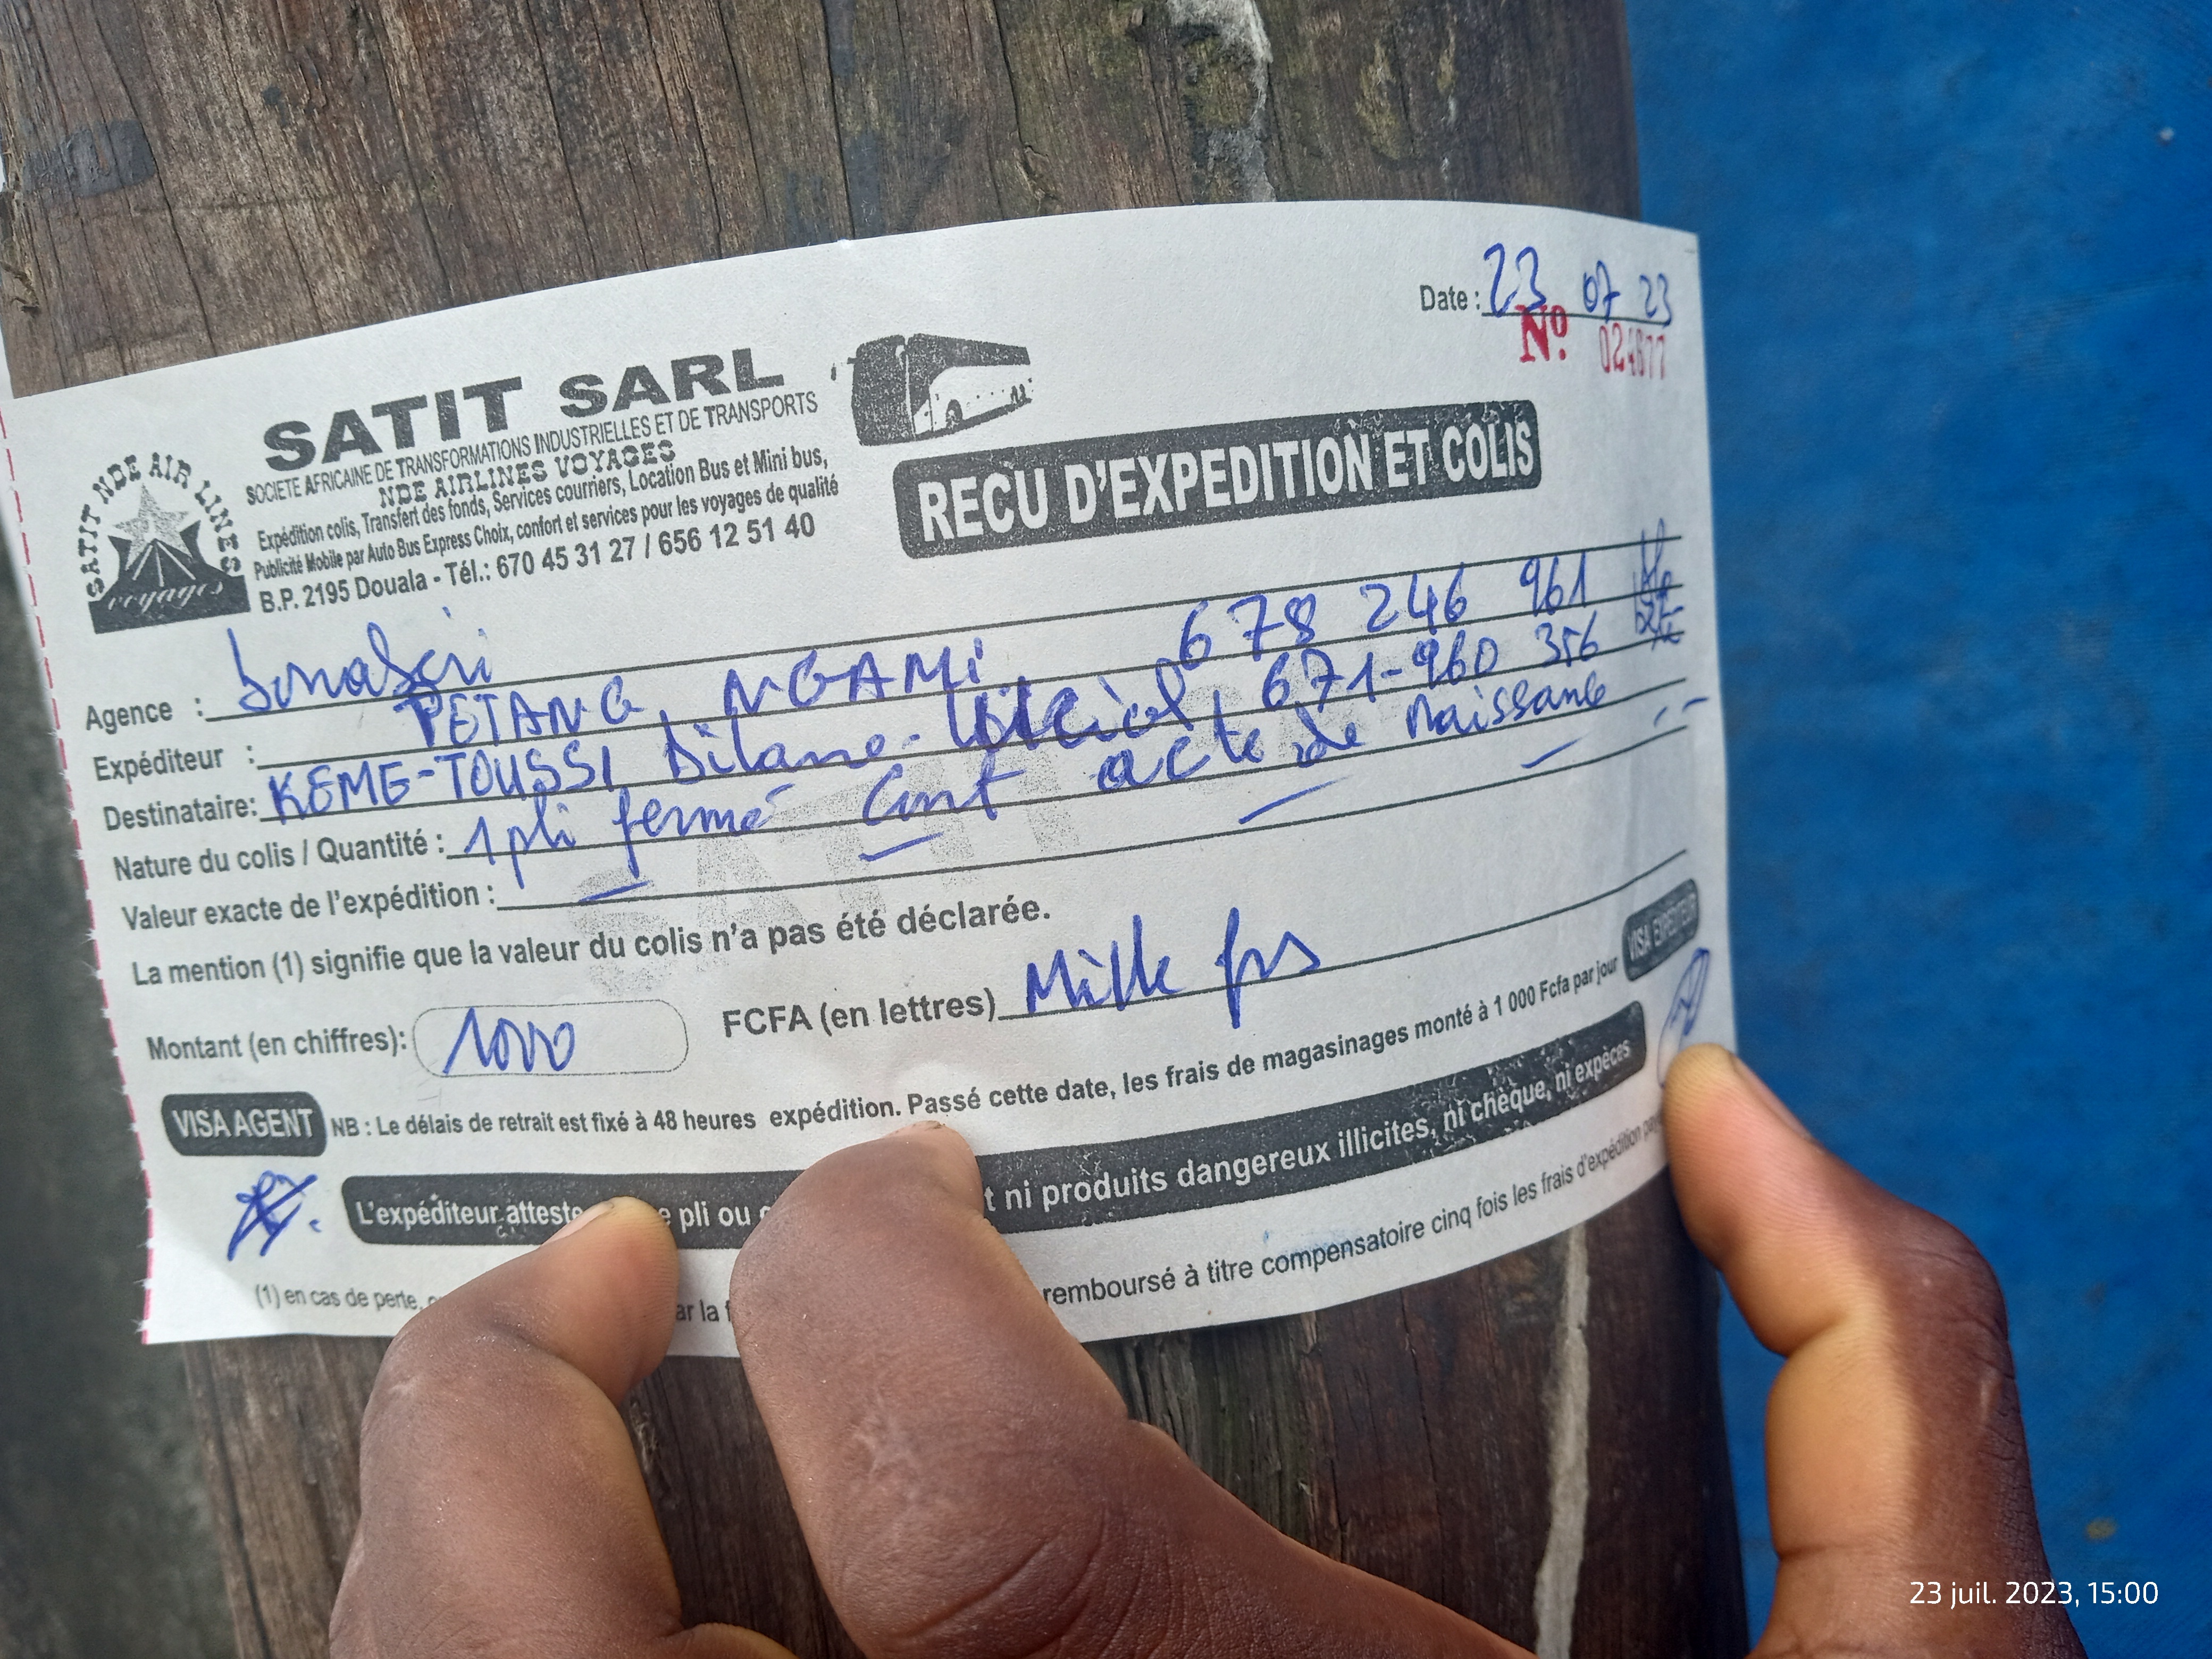 Date : 23 07 23
Nº. 024677
SATIT SARL
SOCIETE AFRICAINE DE TRANSFORMATIONS INDUSTRIELLES ET DE TRANSPORTS
NDE AIRLINES VOYAGES
Expédition colis, Transfert des fonds, Services courriers, Location Bus et Mini bus,
Publicité Mobile par Auto Bus Express Choix, confort et services pour les voyages de qualité
B.P. 2195 Douala - Tél.: 670 45 31 27 / 656 12 51 40
SATIT NDE AIR LINES
voyages
RECU D'EXPEDITION ET COLIS
Agence :
Expéditeur : PETANG NGAMI 678 246 961
Destinataire: KEME-TOUSSI Dilane 671-960 356
Nature du colis / Quantité : 1 pli fermé Cont acte de naissance
Valeur exacte de l'expédition :
La mention (1) signifie que la valeur du colis n'a pas été déclarée.
Montant (en chiffres): 1000 FCFA (en lettres) Mille frs
VISA EXPEDITEUR
VISA AGENT NB : Le délais de retrait est fixé à 48 heures expédition. Passé cette date, les frais de magasinages monté à 1 000 Fcfa par jour
L'expéditeur atteste e pli ou t ni produits dangereux illicites, ni chèque, ni expèces
(1) en cas de perte, ar la f remboursé à titre compensatoire cinq fois les frais d'expédition
23 juil. 2023, 15:00